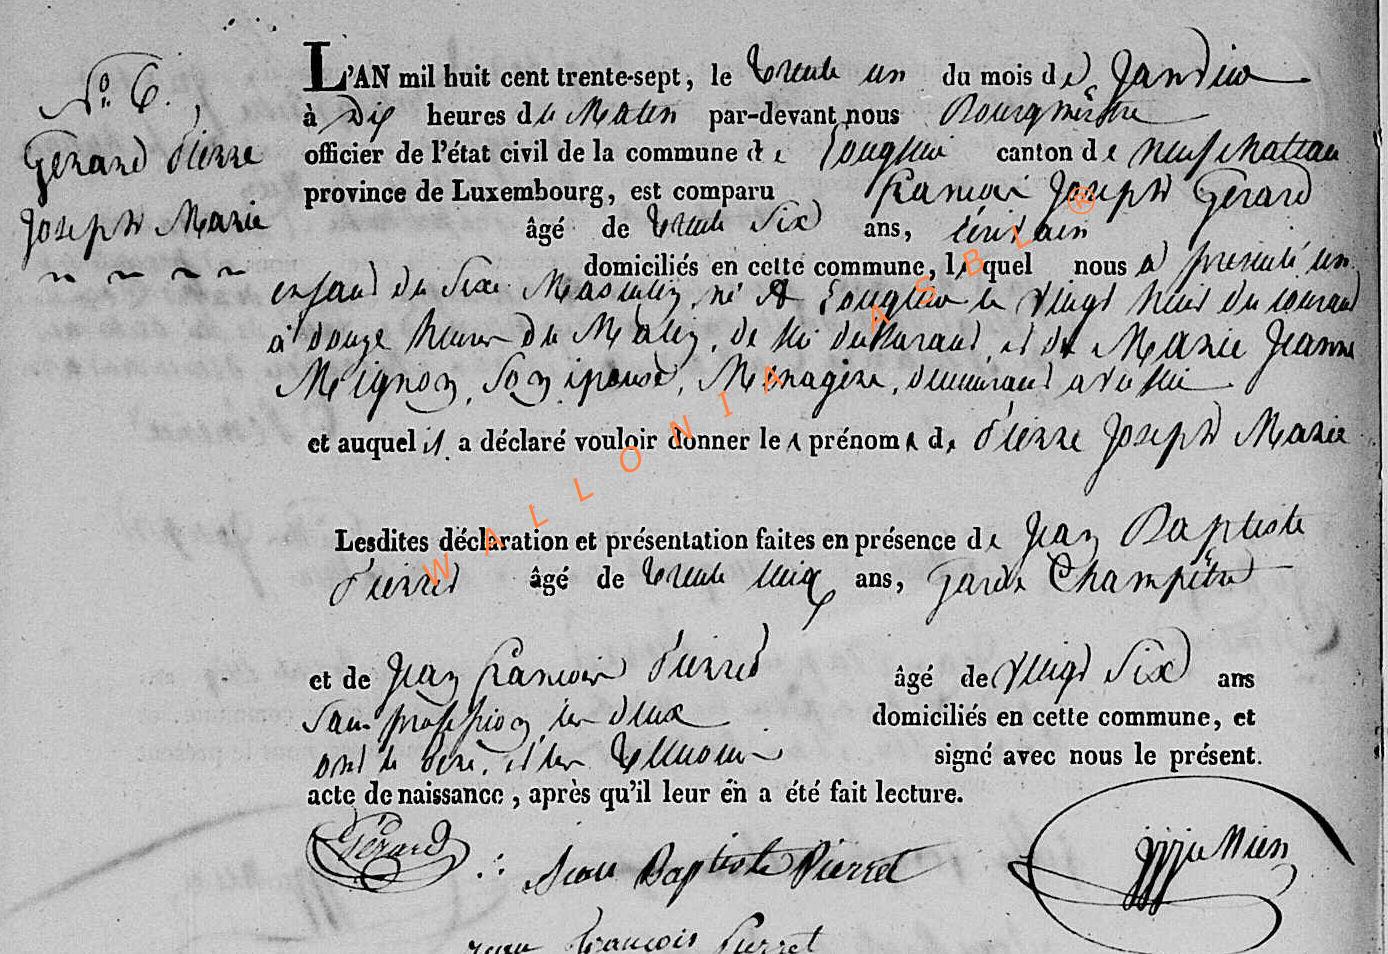 N° 6.
Gérard Pierre
Joseph Marie
L'AN mil huit cent trente-sept, le trente un du mois de Janvier
à Dix heures du Matin par-devant nous Bourgmestre
officier de l'état civil de la commune de Longlier canton de neufchateau
province de Luxembourg, est comparu François Joseph Gérard
âgé de trente Six ans,
domiciliés en cette commune, lequel nous a présenté un
enfant du Sexe Masculin, né à Longlier le Vingt huit du courant
à douze heures du Matin, de lui déclarant, et de Marie Jeanne
Meignon, Son épouse, Ménagère, demeurant avec lui
et auquel il a déclaré vouloir donner les prénoms de Pierre Joseph Marie
Lesdites déclaration et présentation faites en présence de Jean Baptiste
Pierret âgé de trente ans, Garde Champêtre
et de Jean François Pierret âgé de Vingt Six ans
Sans profession, les deux domiciliés en cette commune, et
ont le père, et les témoins signé avec nous le présent
acte de naissance, après qu'il leur én a été fait lecture.
Gérard
Jean Baptiste Pierret
Jean François Pierret
WALLONIA ASBL ®